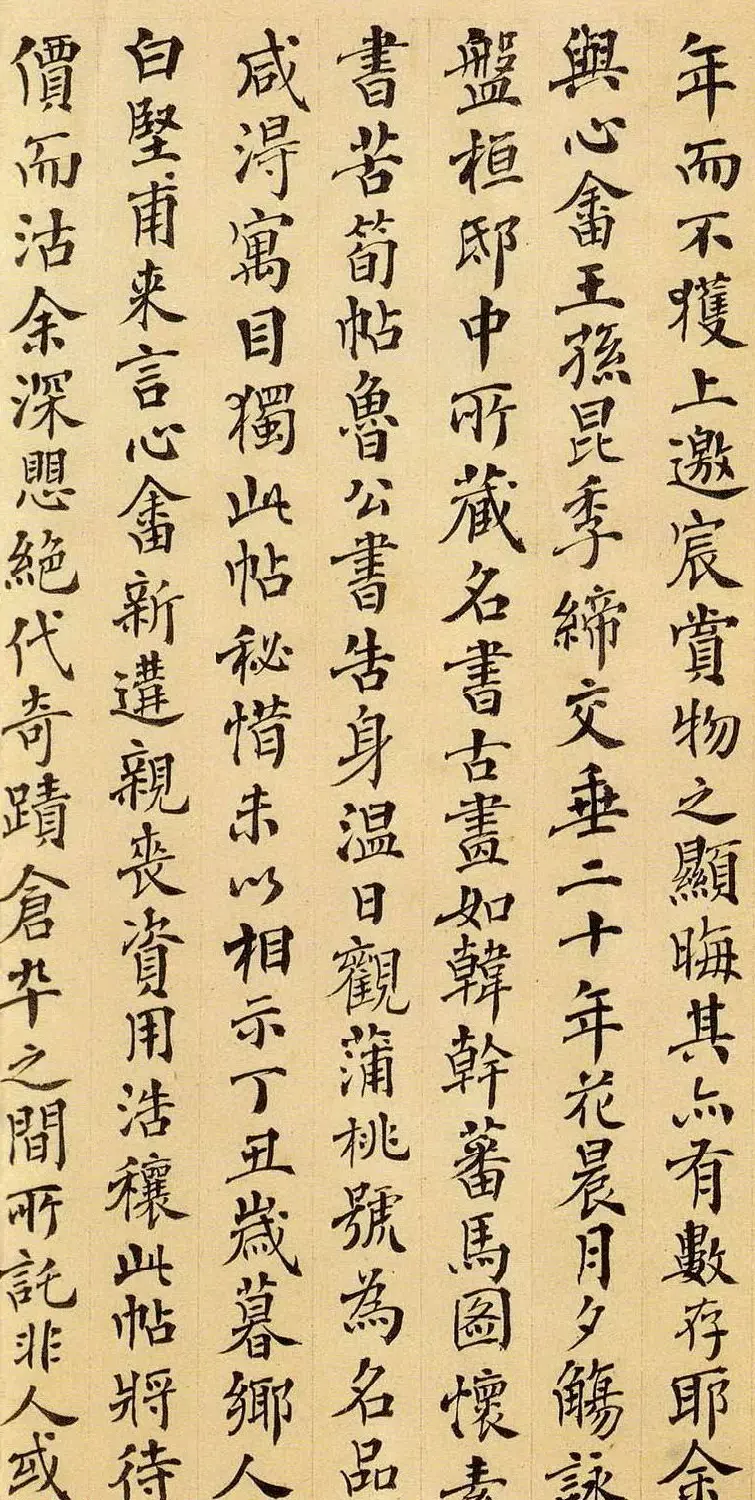 年而不獲上邀宸賞物之顯晦其亦有數存耶余
與心畬王孫昆季締交垂二十年花晨月夕觴詠
盤桓邸中所藏名書古畫如韓幹蕃馬圖懷素
書苦筍帖魯公書告身溫日觀蒲桃號為名品
咸得寓目獨此帖秘惜未以相示丁丑歲暮鄉人
白堅甫來言心畬新遘親喪資用浩穰此帖將待
價而沽余深愳絕代奇蹟倉卒之間所託非人或